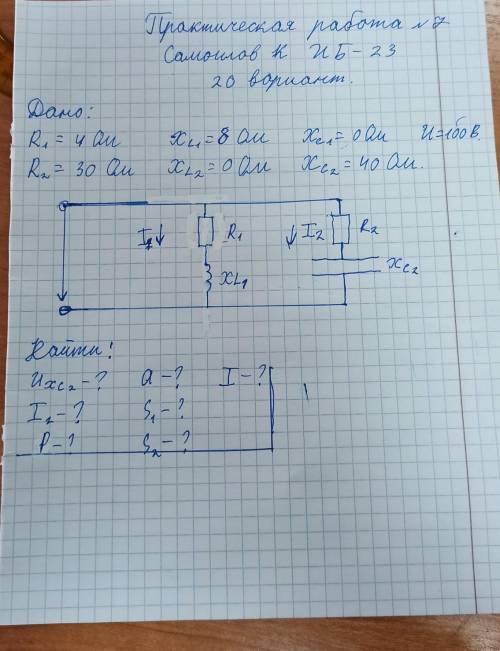 Практическая работа №7
Самоилов К ИБ-23
20 вариант.
Дано:
R1 = 4 Ом XL1=8 Ом XC1=0 Ом U=100 В.
R2 = 30 Ом XL2=0 Ом XC2=40 Ом.
I1 R1 I2 R2
XL1 XC2
Найти:
UXC2-? Q-? I-?
I2-? S1-?
P-? S2-?